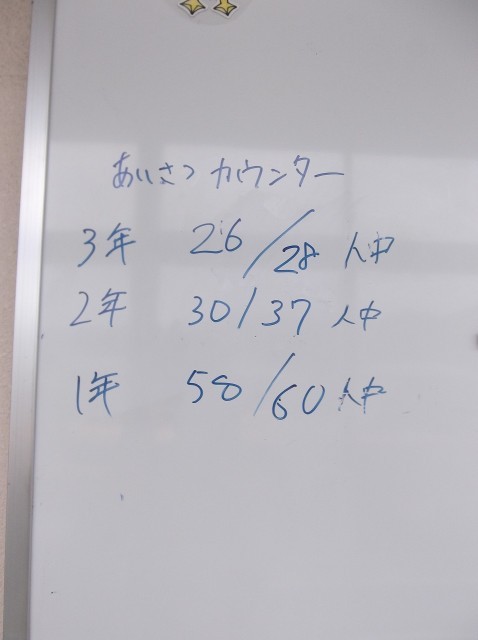 あいさつ カウンター
3年 26/28 人中
2年 30/37 人中
1年 58/60 人中